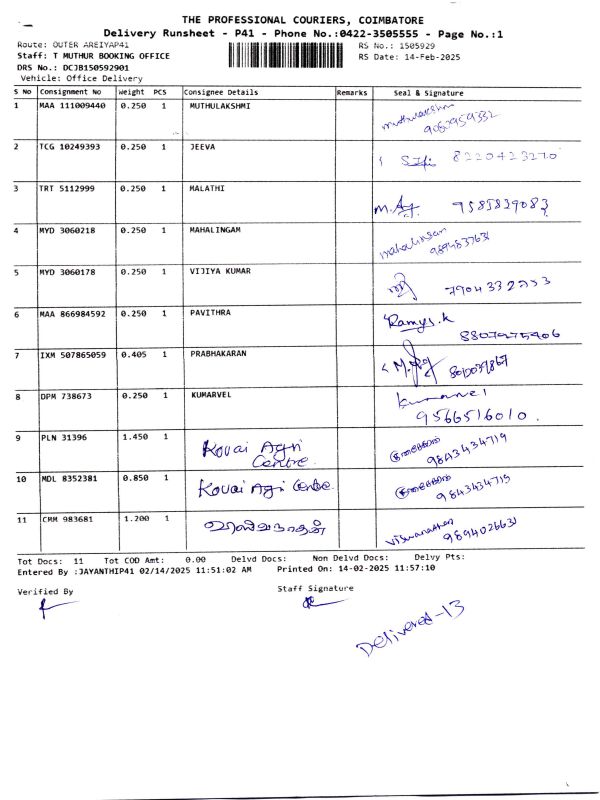 THE PROFESSIONAL COURIERS, COIMBATORE
Delivery Runsheet - P41 - Phone No.:0422-3505555 - Page No.:1
Route: OUTER AREIYAP41 RS No.: 1505929
Staff: T MUTHUR BOOKING OFFICE RS Date: 14-Feb-2025
DRS No.: DCJB150592901
Vehicle: Office Delivery
S No Consignment No Weight PCS Consignee Details Remarks Seal & Signature
1 MAA 111009440 0.250 1 MUTHULAKSHMI muthulakshmi
9080959332
2 TCG 10249393 0.250 1 JEEVA 8220423270
3 TRT 5112999 0.250 1 MALATHI 9585839083
4 MYD 3060218 0.250 1 MAHALINGAM
5 MYD 3060178 0.250 1 VIJIYA KUMAR 7904332753
6 MAA 866984592 0.250 1 PAVITHRA Ramya.k
8807975906
7 IXM 507865059 0.405 1 PRABHAKARAN
8 DPM 738673 0.250 1 KUMARVEL
9566516010.
9 PLN 31396 1.450 1 Kovai Agri Centre.
9843434719
10 MDL 8352381 0.850 1 Kovai Agri Centre.
9843434719
11 CRM 983681 1.200 1 விஸ்வநாதன் Viswanathan
9894026631
Tot Docs: 11 Tot COD Amt: 0.00 Delvd Docs: Non Delvd Docs: Delvy Pts:
Entered By :JAYANTHIP41 02/14/2025 11:51:02 AM Printed On: 14-02-2025 11:57:10
Verified By Staff Signature
Delivered-13